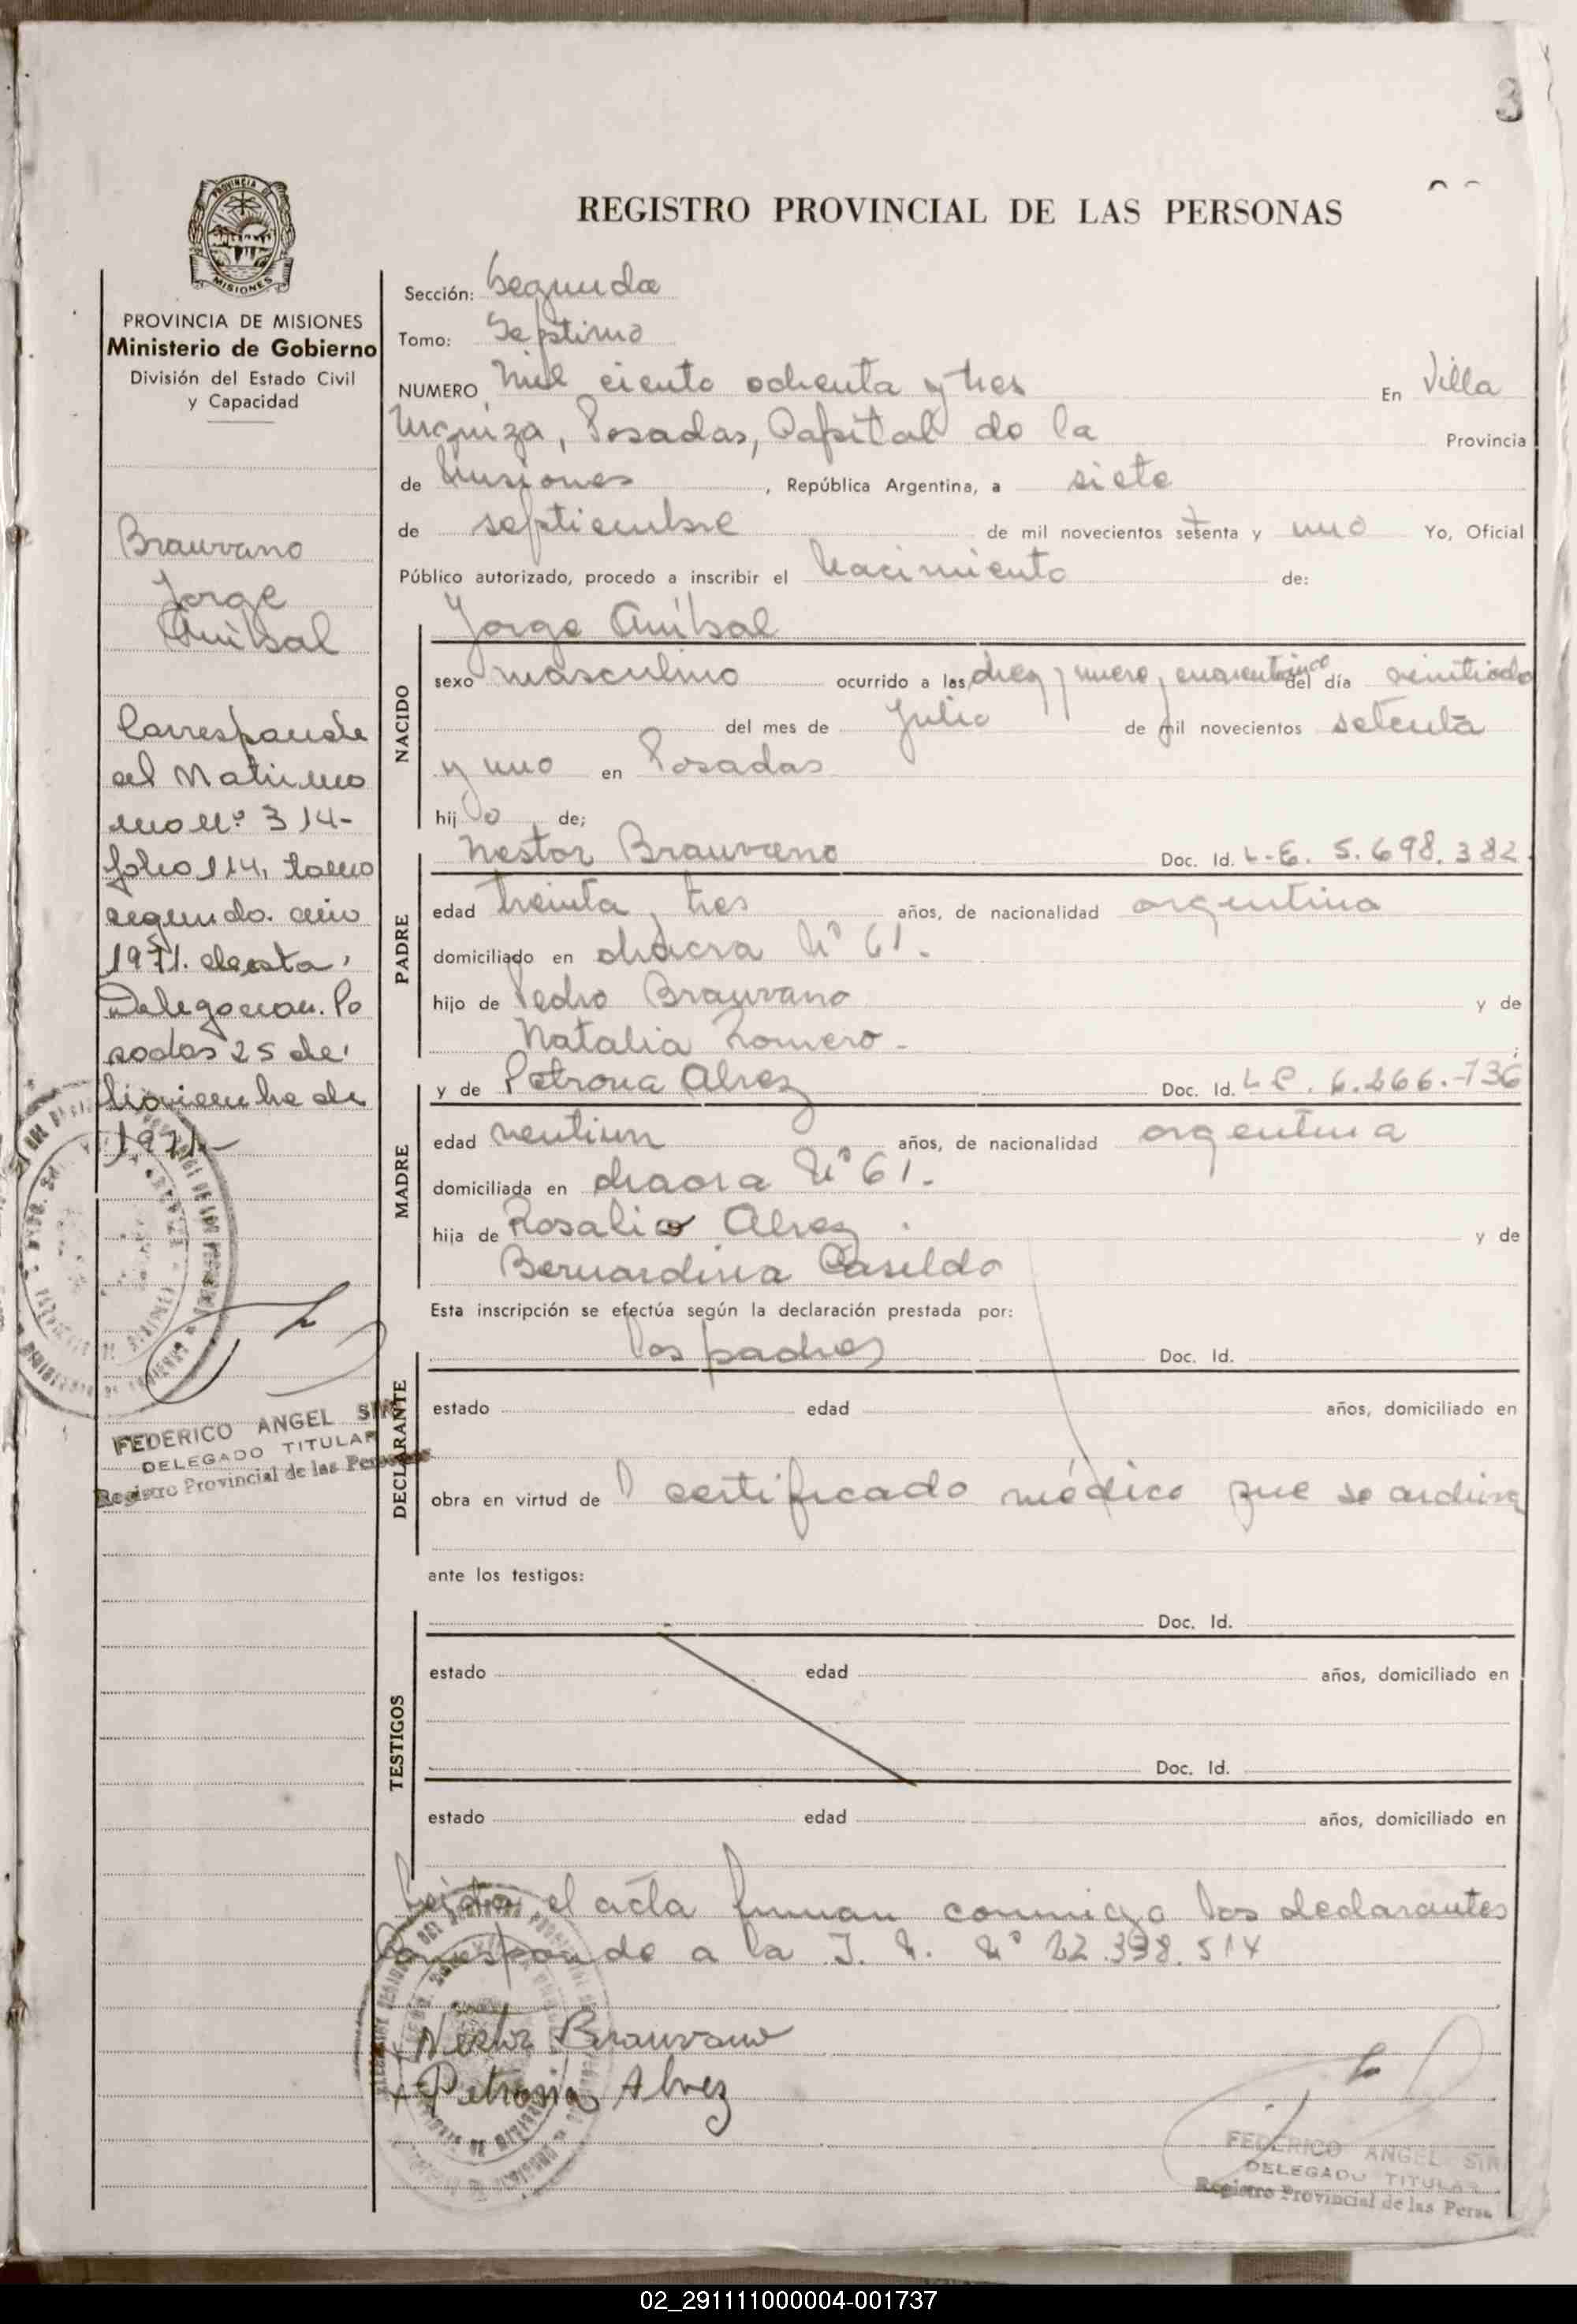 3
REGISTRO PROVINCIAL DE LAS PERSONAS
PROVINCIA DE MISIONES
PROVINCIA DE MISIONES
Ministerio de Gobierno
División del Estado Civil
y Capacidad
Brauvano
Jorge
Aníbal
Corresponde
al Matrimo
nio Nº 314-
folio 114, tomo
segundo. año
1971. de esta
Delegacion. Po
sadas 25 de
Noviembre de
1971
FEDERICO ANGEL
DELEGADO TITULAR
Registro Provincial de las
Sección: Segunda
Tomo: Septimo
NUMERO Mil ciento ochenta y tres En Villa
Urquiza, Posadas, Capital de la Provincia
de Misiones, República Argentina, a siete
de septiembre de mil novecientos setenta y uno Yo, Oficial
Público autorizado, procedo a inscribir el Nacimiento de:
Jorge Aníbal
NACIDO
sexo masculino ocurrido a las diez y nueve y cuarenta cinco del día veintiocho
del mes de Julio de mil novecientos setenta
y uno en Posadas
hijo de;
Nestor Brauvano Doc. Id. L.E. 5.698.382
PADRE
edad treinta y tres años, de nacionalidad argentina
domiciliado en chacra Nº 61.
hijo de Pedro Brauvano y de
Natalia Romero -
y de Petrona Alvez Doc. Id. L.C. 6.266.736
MADRE
edad veintiun años, de nacionalidad argentina
domiciliada en chacra Nº 61.
hija de Rosalio Alvez y de
Bernardina Casildo
Esta inscripción se efectúa según la declaración prestada por:
los padres Doc. Id.
DECLARANTE
estado edad años, domiciliado en
obra en virtud de certificado médico que se archiva
ante los testigos:
Doc. Id.
TESTIGOS
estado edad años, domiciliado en
Doc. Id.
estado edad años, domiciliado en
Leida el acta firman conmigo los declarantes
Corresponde a la I. N. Nº 22.398.514
Nestor Brauvano
Petrona Alvez
FEDERICO ANGEL
DELEGADO TITULAR
Registro Provincial de las
02_291111000004-001737